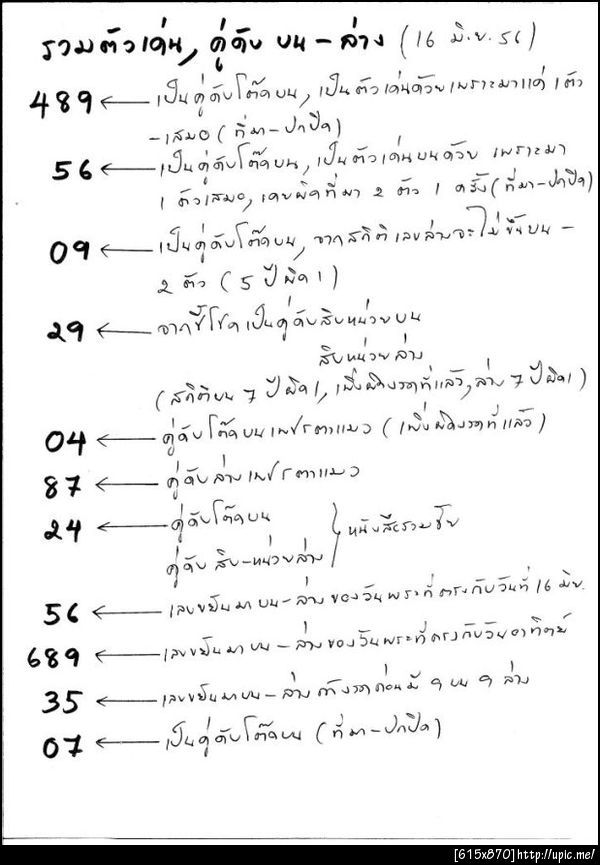 รวมตัวเด่น, คู่ดับ บน - ล่าง (16 มิ.ย. 56)
489 ← เป็นคู่ดับโต๊ดบน, เป็นตัวเด่นด้วยเพราะมาแค่ 1 ตัว
- เสมอ (ที่มา - ปกปิด)
56 ← เป็นคู่ดับโต๊ดบน, เป็นตัวเด่นบนด้วย เพราะมา
1 ตัวเสมอ, เคยผิดที่มา 2 ตัว 1 ครั้ง (ที่มา - ปกปิด)
09 ← เป็นคู่ดับโต๊ดบน, จากสถิติเลขล่างจะไม่ขึ้นบน -
2 ตัว (5 ปี ผิด 1)
29 ← จากชี้โชคเป็นคู่ดับสิบหน่วยบน
สิบหน่วยล่าง
(สถิติบน 7 ปีผิด 1, เพิ่งผิดงวดที่แล้ว, ล่าง 7 ปีผิด 1)
04 ← คู่ดับโต๊ดบนเพชรตาแมว (เพิ่งผิดงวดที่แล้ว)
87 ← คู่ดับล่างเพชรตาแมว
24 ← คู่ดับโต๊ดบน
คู่ดับ สิบ - หน่วยล่าง } หนังสือรวมชัย
56 ← เลขขยันมาบน - ล่าง ของวันพระที่ตรงกับวันที่ 16 มิย.
689 ← เลขขยันมาบน - ล่างของวันพระที่ตรงกับวันอาทิตย์
35 ← เลขขยันมาบน - ล่าง ถ้างวดก่อนมี 9 บน 9 ล่าง
07 ← เป็นคู่ดับโต๊ดบน (ที่มา - ปกปิด)
[615x870]http://upic.me/